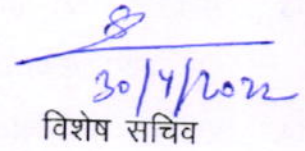 30/4/2022
विशेष सचिव